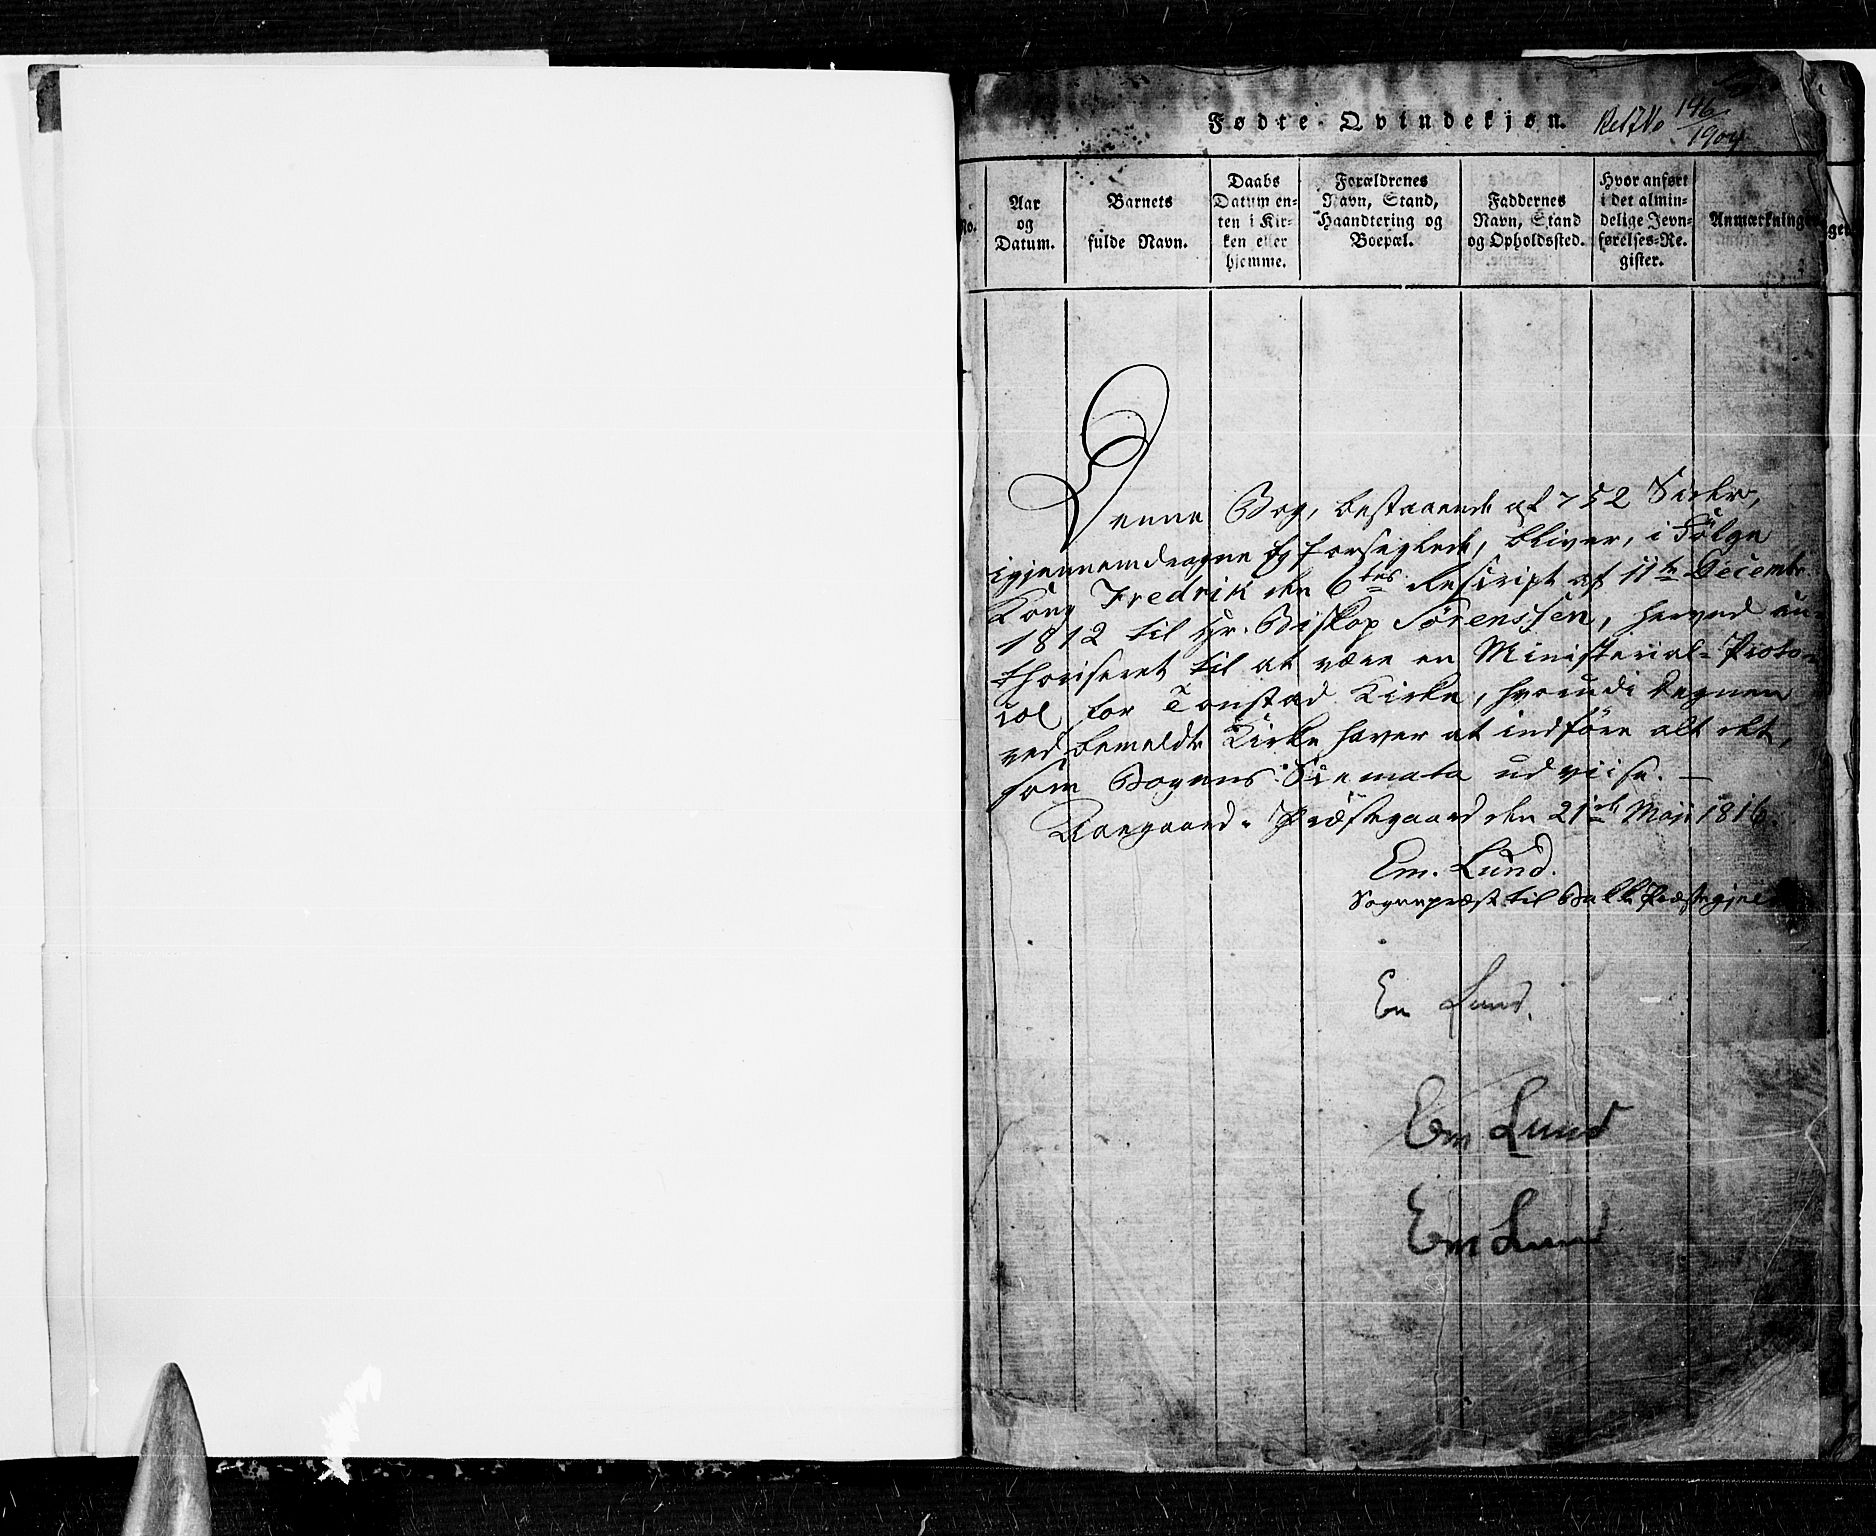 Fødte Qvindekjøn.
146
1904
No.
Aar
og
Datum.
Barnets
fulde Navn.
Daabs
Datum en-
ten i Kir-
ken eller
hjemme.
Forældrenes
Navn, Stand,
Haandtering og
Boepæl.
Faddernes
Navn, Stand
og Opholdssted.
Hvor anført
i det almin-
delige Jevn-
førelses-Re-
gister.
Anmærkninger
Denne Bog, bestaaende af 752 Sider,
igjennemdragne og forseglede, bliver, i Følge
Kong Fredrik den 6tes Rescript af 11te Decembr
1812 til Hr. Biskop Sørenssen, herved au-
thoriseret til at være en Ministerial-Proto-
col for Tonstad Kirke, hvorudi Degnen
ved bemeldte Kirke haver at indføre alt det,
som Bogens Scemata udviise. —
Præstegaard den 21de Maji 1816.
Em. Lund.
Sognepræst til Bakke Præstegjel
Em Lund.
Em Lund
Em Lund